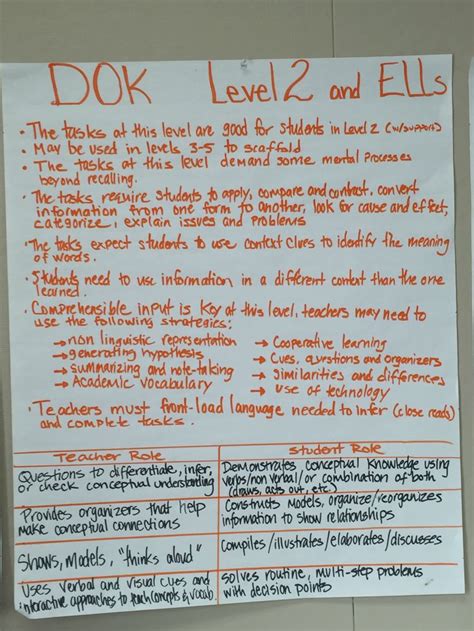 DOK Level 2 and ELLs
• The tasks at this level are good for students in Level 2 (w/support)
• May be used in levels 3-5 to scaffold
• The tasks at this level demand some mental processes
beyond recalling.
• The tasks require students to apply, compare and contrast, convert
information from one form to another, look for cause and effect,
categorize, explain issues and problems
• The tasks expect students to use context clues to identify the meaning
of words.
• Students need to use information in a different context than the one
learned.
• Comprehensible input is key at this level, teachers may need to
use the following strategies:
→ non linguistic representation → Cooperative learning
→ generating hypothesis → Cues, questions and organizers
→ summarizing and note-taking → Similarities and differences
→ Academic vocabulary → use of technology
• Teachers must front-load language needed to infer (close reads)
and complete tasks.
Teacher Role Student Role
Questions to differentiate, infer, Demonstrates conceptual knowledge using
or check conceptual understanding verbs/non verbal/or combination of both
(draws, acts out, etc.)
Provides organizers that help Constructs models, organize/reorganizes
make conceptual connections information to show relationships
Shows, Models, "thinks aloud" Compiles/illustrates/elaborates/discusses
Uses verbal and visual cues and solves routine, multi-step problems
interactive approaches to teach concepts & vocab. with decision points